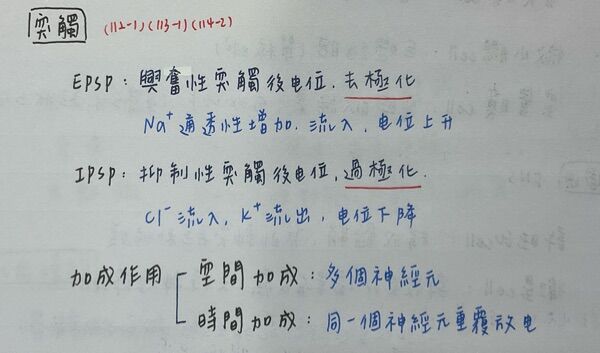 突觸 (112-1)(113-1)(114-2)
EPSP：興奮性突觸後电位，去極化
Na⁺通透性增加．流入，电位上升
IPSP：抑制性突觸後电位，過極化．
Cl⁻流入，K⁺流出，电位下降
加成作用 空間加成：多個神經元
時間加成：同一個神經元重覆放电